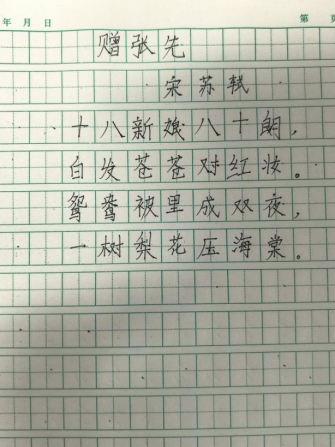 年 月 日 第 页
赠张先
宋 苏轼
十八新娘八十朗,
白发苍苍对红妆。
鸳鸯被里成双夜,
一树梨花压海棠。